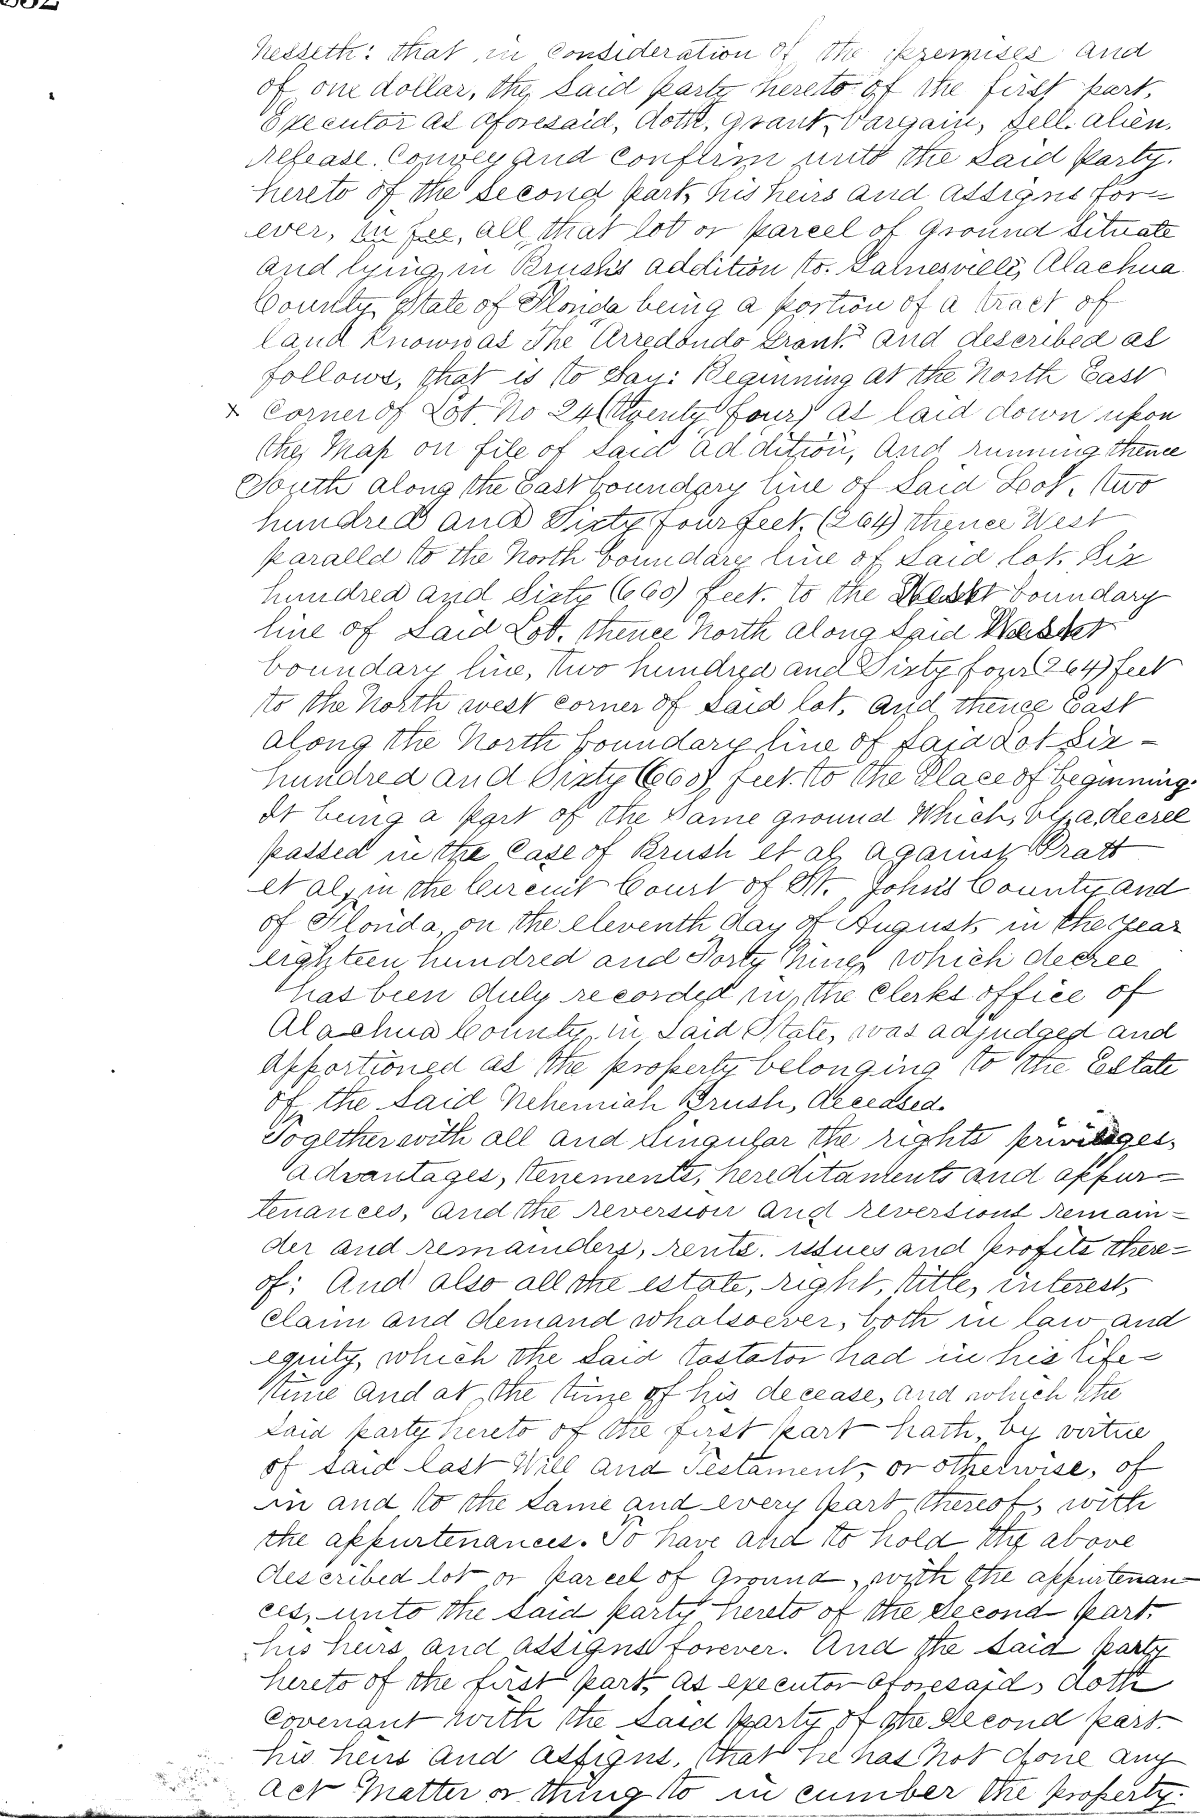 nesseth: that in consideration of the premises and
of one dollar, the said party hereto of the first part,
Executor as aforesaid, doth, grant, bargain, sell. alien.
release. Convey and confirm unto the said party.
hereto of the second part, his heirs and assigns for=
ever, in fee, all, that lot or parcel of ground situate
and lying in Brush's addition to. Gainesville, Alachua
County, State of Florida being a portion of a tract of
land known as The "Arredondo Grant" and described as
follows, that is to say: Beginning at the North East
x corner of Lot No 24 (twenty four) as laid down upon
the Map on file of said "addition", and running thence
South along the East boundary line of said Lot, two
hundred and Sixty four feet, (264) thence West
paralld to the North boundary line of said lot. Six
hundred and Sixty (660) feet. to the West boundary
line of said Lot. thence North along said West
boundary line, two hundred and Sixty four (264) feet
to the North west corner of said lot, and thence East
along the North boundary line of said Lot Six-
hundred and Sixty (660) feet to the Place of beginning.
It being a part of the same ground Which, by a decree
passed in the case of Brush et al, against Pratt
et al, in the Circuit Court of St. John's County and
of Florida, on the eleventh day of August, in the year
eighteen hundred and Forty Nine, which decree
has been duly recorded in the Clerks office of
Alachua County, in said State, was adjudged and
apportioned as the property belonging to the Estate
of the said Nehemiah Brush, deceased.
Together with all and singular the rights privileges,
advantages, tenements, hereditaments and appur=
tenances, and the reversion and reversions remain=
der and remainders, rents. issues and profits there=
of: And also all the estate, right, title, interest,
claim and demand whatsoever, both in law and
equity, which the said tastator had in his life=
time and at the time of his decease, and which the
said party hereto of the first part hath, by virtue
of said last Will and Testament, or otherwise, of
in and to the same and every part thereof, with
the appurtenances. To have and to hold the above
described lot or parcel of ground, with the appurtenan-
ces, unto the said party hereto of the second part.
his heirs and assigns forever. And the said party
hereto of the first part, as executor aforesaid, doth
covenant with the said party of the second part.
his heirs and assigns, that he has not done any
act Matter or thing to in cumber the property.